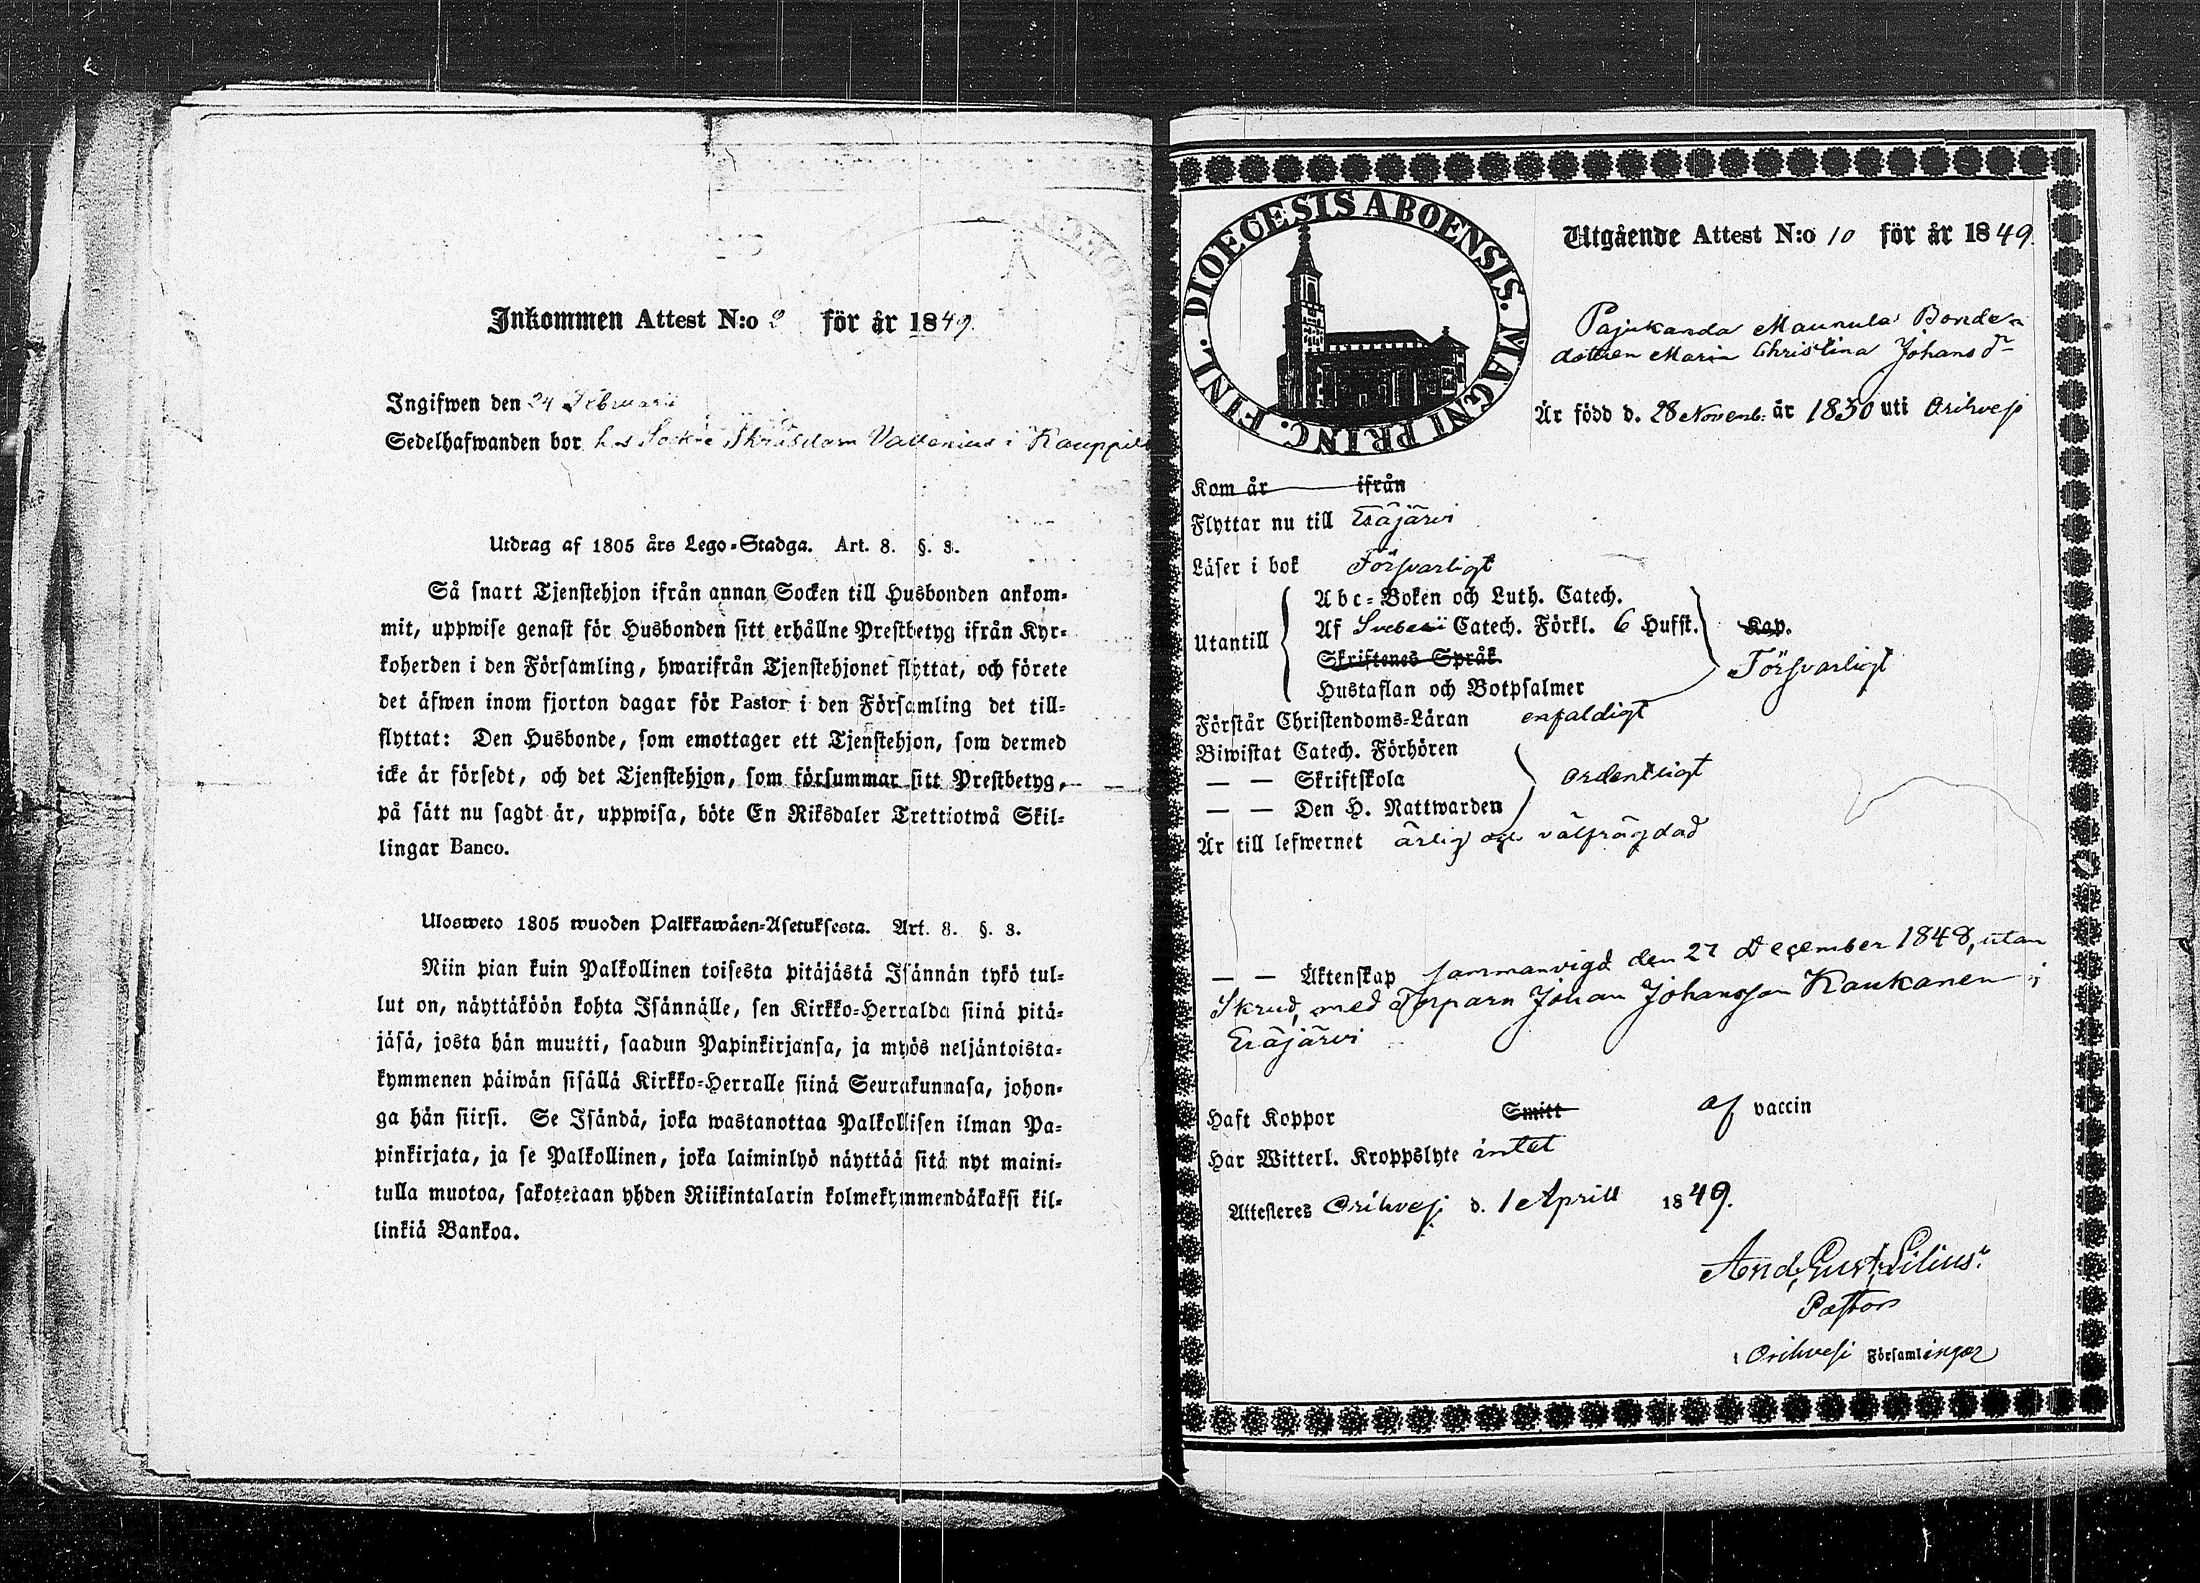 Inkommen Attest N:o 2 för år 1849.
Ingifwen den 24 Februarii
Sedelhafwanden bor hos Sockne Skräddarn i Kauppila
Utdrag af 1805 års Lego-Stadga. Art. 8. §. 3.
Så snart Tjenstehjon ifrån annan Socken till Husbonden ankom-
mit, uppwise genast för Husbonden sitt erhållne Prestbetyg ifrån Kyr-
koherden i den Församling, hwarifrån Tjenstehjonet flyttat, och förete
det äfwen inom fjorton dagar för Pastor i den Församling det till-
flyttat: Den Husbonde, som emottager ett Tjenstehjon, som dermed
icke är försedt, och det Tjenstehjon, som försummar sitt Prestbetyg,
på sätt nu sagdt är, uppwisa, böte En Riksdaler Trettiotwå Skil-
lingar Banco.
Ulosweto 1805 wuoden Palkkawäen-Asetuksesta. Art. 8. §. 3.
Niin pian kuin Palkollinen toisesta pitäjästä Isännän tykö tul-
lut on, näyttäköön kohta Isännälle, sen Kirkko-Herralda siinä pitä-
jäsä, josta hän muutti, saadun Papinkirjansa, ja myös neljäntoista-
kymmenen päiwän sisällä Kirkko-Herralle siinä Seurakunnasa, johon-
ga hän siirsi. Se Isändä, joka wastanottaa Palkollisen ilman Pa-
pinkirjata, ja se Palkollinen, joka laiminlyö näyttää sitä nyt maini-
tulla muotoa, sakotetaan yhden Riikintalarin kolmekymmendäkaksi kil-
linkiä Bankoa.
DIOECESIS ABOENSIS. MAGNI PRINC. FINL.
Utgående Attest N:o 10 för år 1849.
Pajukanda Maunula Bonde-
dottren Maria Christina Johansdr
Är född d. 28 Novemb. år 1830 uti Orihvesi
Kom år ifrån
Flyttar nu till Eräjärvi
Läser i bok Försvarligt
Utantill
Abc-Boken och Luth. Catech.
Af Svebelii Catech. Förkl. 6 Hufst. Kap.
Skriftenes Språk
Försvarligt
Hustaflan och Botpsalmer
Förstår Christendoms-Läran enfaldigt
Biwistat Catech. Förhören
— — Skriftskola ordentligt
— — Den H. Nattwarden
Är till lefwernet ärlig och välfrägdad
— — Äktenskap sammanvigd den 27 December 1848, utan
Skrud, med Torparn Johan Johansson Kaukanen i
Eräjärvi
Haft Koppor Smitt af vaccin
Har Witterl. Kroppslyte intet
Attesteres Orihvesi d. 1 Aprill 1849.
And. Gust. Lilius.
Pastor
i Orihvesi Församlingar